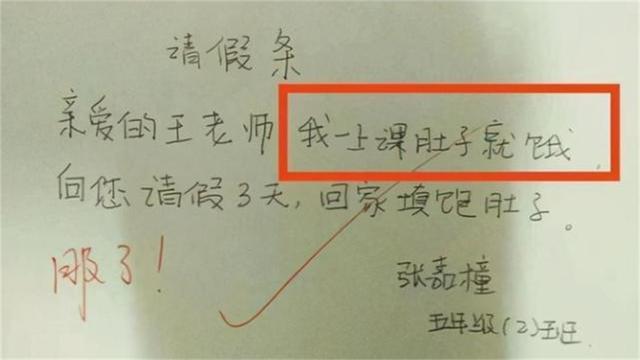 请假条
亲爱的王老师我一上课肚子就饿,
向您请假3天,回家填饱肚子。
服了!
张嘉橦
五年级(2)班